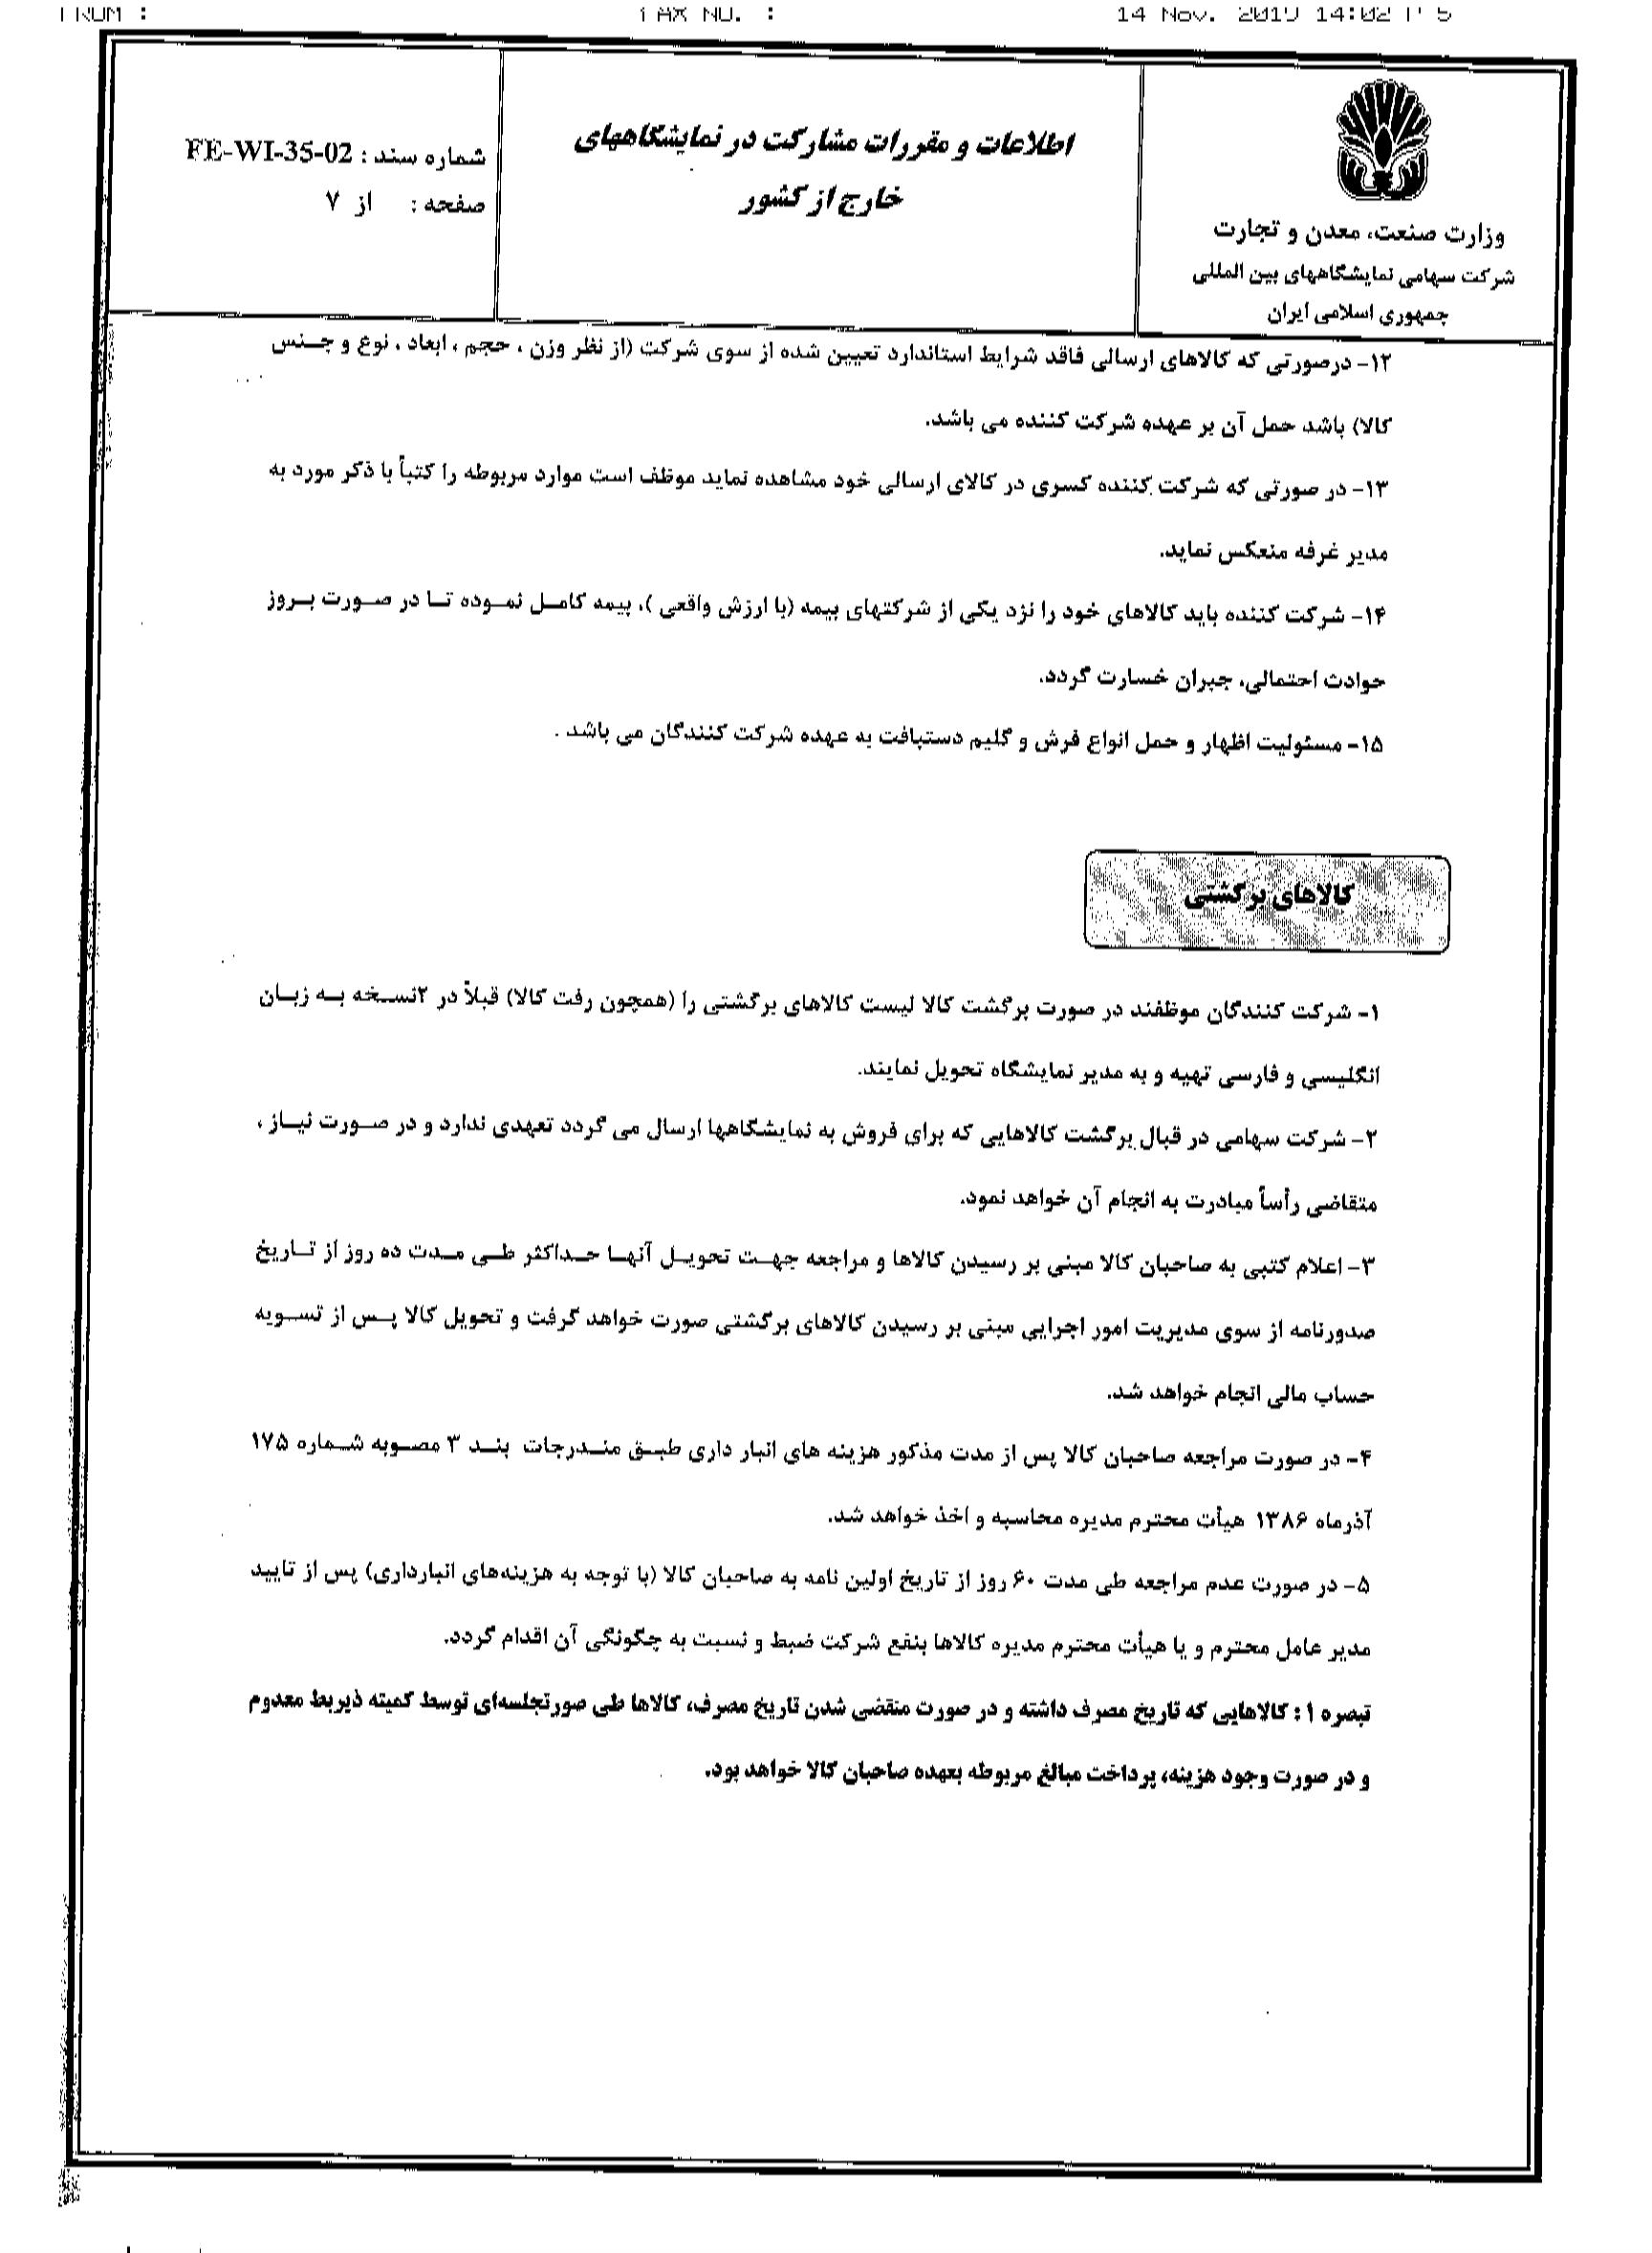 FAX NO. :
14 Nov. 2019 14:02 P 5
وزارت صنعت، معدن و تجارت
شرکت سهامی نمایشگاههای بین المللی
جمهوری اسلامی ایران
اطلاعات و مقررات مشارکت در نمایشگاههای
خارج از کشور
شماره سند : FE-WI-35-02
صفحه : از ۷
۱۲- درصورتی که کالاهای ارسالی فاقد شرایط استاندارد تعیین شده از سوی شرکت (از نظر وزن ، حجم ، ابعاد ، نوع و جنس
کالا) باشد حمل آن بر عهده شرکت کننده می باشد.
۱۳- در صورتی که شرکت کننده کسری در کالای ارسالی خود مشاهده نماید موظف است موارد مربوطه را کتباً با ذکر مورد به
مدیر غرفه منعکس نماید.
۱۴- شرکت کننده باید کالاهای خود را نزد یکی از شرکتهای بیمه (با ارزش واقعی )، بیمه کامل نموده تا در صورت بروز
حوادث احتمالی، جبران خسارت گردد.
۱۵- مسئولیت اظهار و حمل انواع فرش و گلیم دستبافت به عهده شرکت کنندگان می باشد .
کالاهای برگشتی
۱- شرکت کنندگان موظفند در صورت برگشت کالا لیست کالاهای برگشتی را (همچون رفت کالا) قبلاً در ۲نسخه به زبان
انگلیسی و فارسی تهیه و به مدیر نمایشگاه تحویل نمایند.
۲- شرکت سهامی در قبال برگشت کالاهایی که برای فروش به نمایشگاهها ارسال می گردد تعهدی ندارد و در صورت نیاز ،
متقاضی رأساً مبادرت به انجام آن خواهد نمود.
۳- اعلام کتبی به صاحبان کالا مبنی بر رسیدن کالاها و مراجعه جهت تحویل آنها حداکثر طی مدت ده روز از تاریخ
صدورنامه از سوی مدیریت امور اجرایی مبنی بر رسیدن کالاهای برگشتی صورت خواهد گرفت و تحویل کالا پس از تسویه
حساب مالی انجام خواهد شد.
۴- در صورت مراجعه صاحبان کالا پس از مدت مذکور هزینه های انبار داری طبق مندرجات بند ۳ مصوبه شماره ۱۷۵
آذرماه ۱۳۸۶ هیأت محترم مدیره محاسبه و اخذ خواهد شد.
۵- در صورت عدم مراجعه طی مدت ۶۰ روز از تاریخ اولین نامه به صاحبان کالا (با توجه به هزینه‌های انبارداری) پس از تایید
مدیر عامل محترم و یا هیأت محترم مدیره کالاها بنفع شرکت ضبط و نسبت به چگونگی آن اقدام گردد.
تبصره ۱ : کالاهایی که تاریخ مصرف داشته و در صورت منقضی شدن تاریخ مصرف، کالاها طی صورتجلسه‌ای توسط کمیته ذیربط معدوم
و در صورت وجود هزینه، پرداخت مبالغ مربوطه بعهده صاحبان کالا خواهد بود.